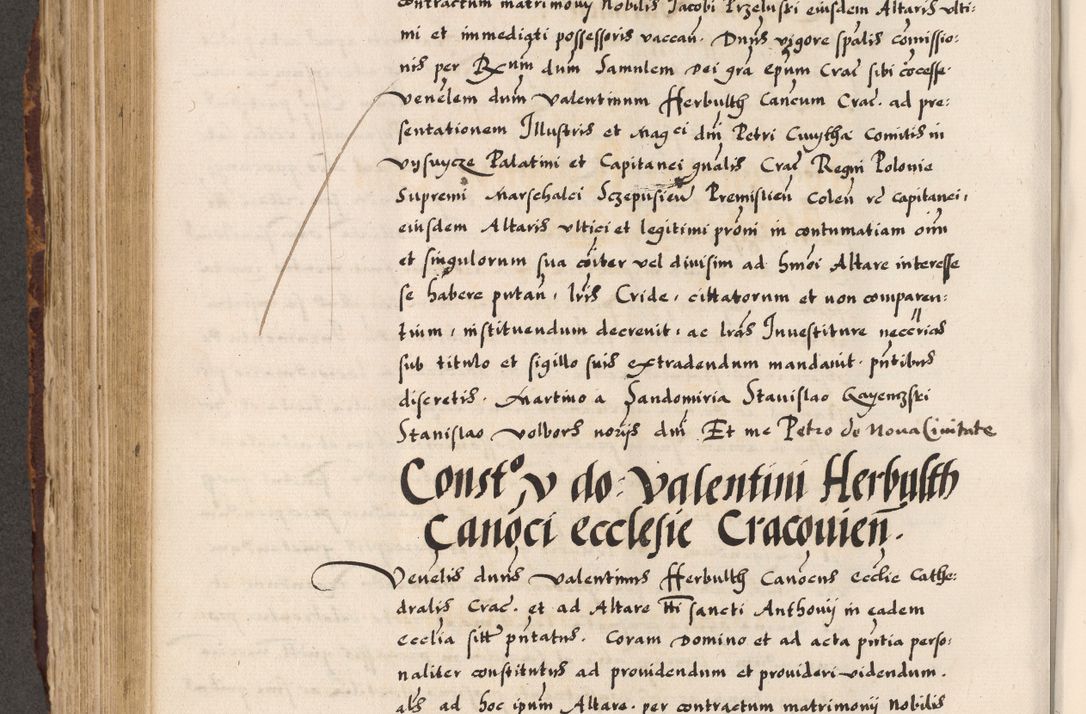 contractum matrimonij Nobilis Jacobi Przeluski eiusdem Altaris ulti:
mi et immediati possessoris vaccan. Dnus vigore spalis comissio:
nis per Rxum dum Samulem Dei gra epum Crac sibi cocesse
venelem dum Valentinum Herbulth Cancum Crac. ad pre:
sentationem Illustris et Magci dni Petri Cmytha Comitis in
vysnycze Palatini et Capitanei gnalis Crac Regni Polonie
Supremi Marschalci Sczepusien Premislien Colen rc capitanei,
eiusdem Altaris ulticici et legitimi proni in contumatiam oim
et singulorum sua coiter vel divisim ad hmoi Altare interesse
se habere putan, lris Cride, cittatorum et non comparen:
tium, instituendum decrevit, ac lras Investiture neccrias
sub titulo et sigillo suis extradendum mandavit. pntibus
discretis. Martino a Sandomiria Stanislao Gayewski
Stanislao Volbors norijs dni Et me Petro de Nova Civitate
Const⁰, v do: Valentini Herbulth
Canoci ecclesie Cracovien.
Venelis dnus Valentinus Herbulth Canocus ecclie Cathe:
dralis Crac. et ad Altare tti sancti Anthonij in eadem
ecclia sitt pntatus. Coram Domino et ad acta pntia perso:
naliter constitutus ad providendum et provideri videndum.
als ad hoc ipum Altare. per contractum matrimonij Nobilis